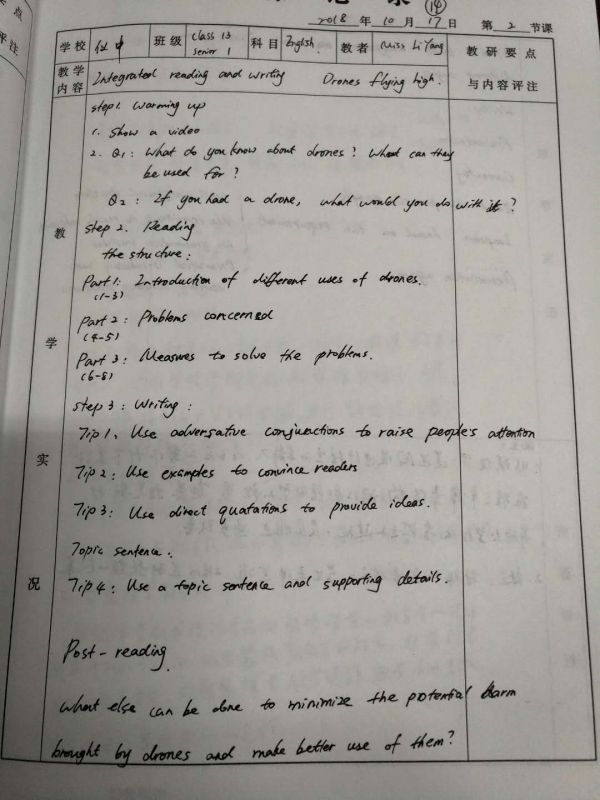 ⑭
2018 年 10 月 17 日 第 2 节课
学校 仪中 班级 Class 13 Senior 1 科目 English. 教者 Miss Li Yang 教研要点
教学内容 Integrated reading and writing Drones flying high. 与内容评注
step1. Warming up
1. Show a video
2. Q1: What do you know about drones? What can they
be used for?
Q2: If you had a drone, what would you do with it?
step 2. Reading
the structure:
Part 1: Introduction of different uses of drones.
(1-3)
Part 2: Problems concerned
(4-5)
Part 3: Measures to solve the problems.
(6-8)
step 3: Writing:
Tip 1. Use adversative conjunctions to raise people's attention
Tip 2: Use examples to convince readers
Tip 3: Use direct quatations to provide ideas.
Topic sentence:
Tip 4: Use a topic sentence and supporting details.
Post-reading.
What else can be done to minimize the potential harm
brought by drones and make better use of them?
教
学
实
况